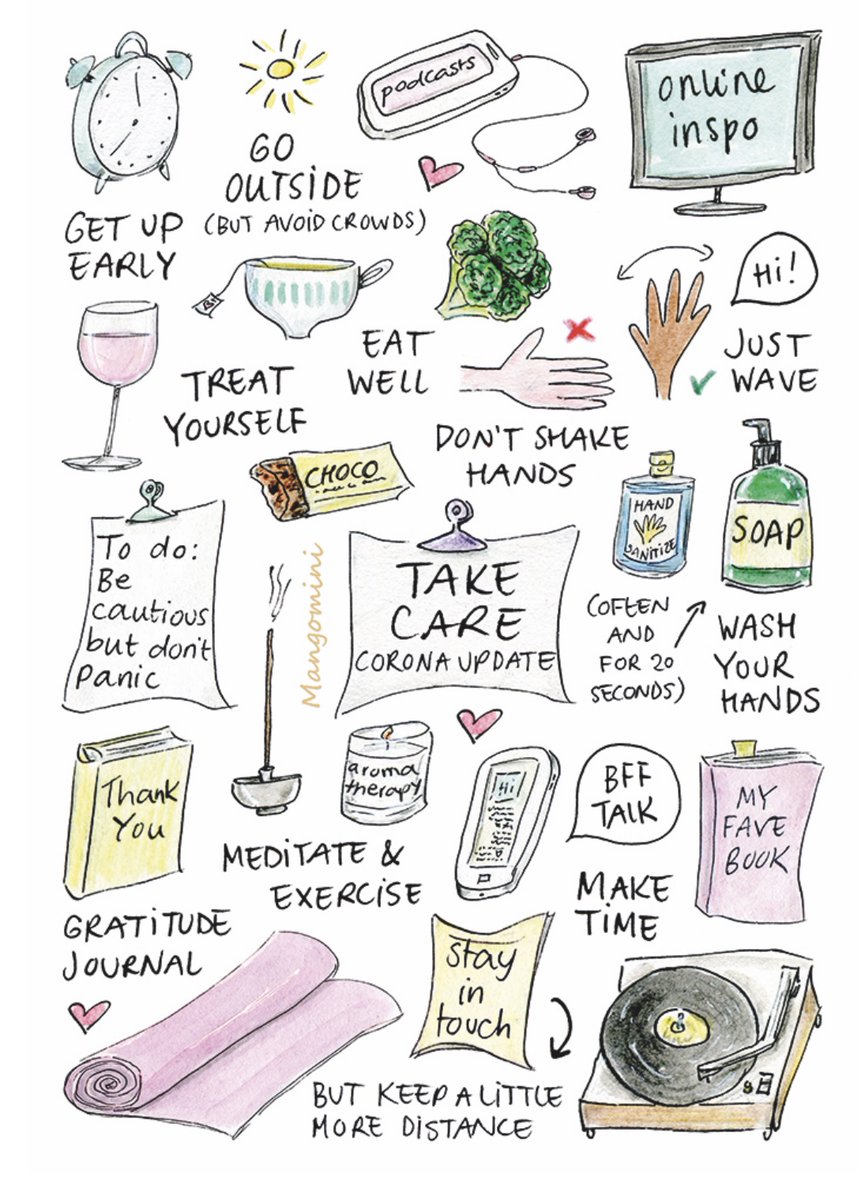 podcasts
online
inspo
GO
OUTSIDE
(BUT AVOID CROWDS)
GET UP
EARLY
Hi!
EAT
WELL
JUST
WAVE
TREAT
YOURSELF
DON'T SHAKE
HANDS
CHOCO
HAND
SANITIZE
SOAP
To do:
Be
cautious
but don't
Panic
Mangomini
TAKE
CARE
CORONA UPDATE
(OFTEN
AND
FOR 20
SECONDS)
WASH
YOUR
HANDS
Thank
You
aroma
therapy
Hi
BFF
TALK
MY
FAVE
BOOK
MEDITATE &
EXERCISE
MAKE
TIME
GRATITUDE
JOURNAL
stay
in
touch
BUT KEEP A LITTLE
MORE DISTANCE